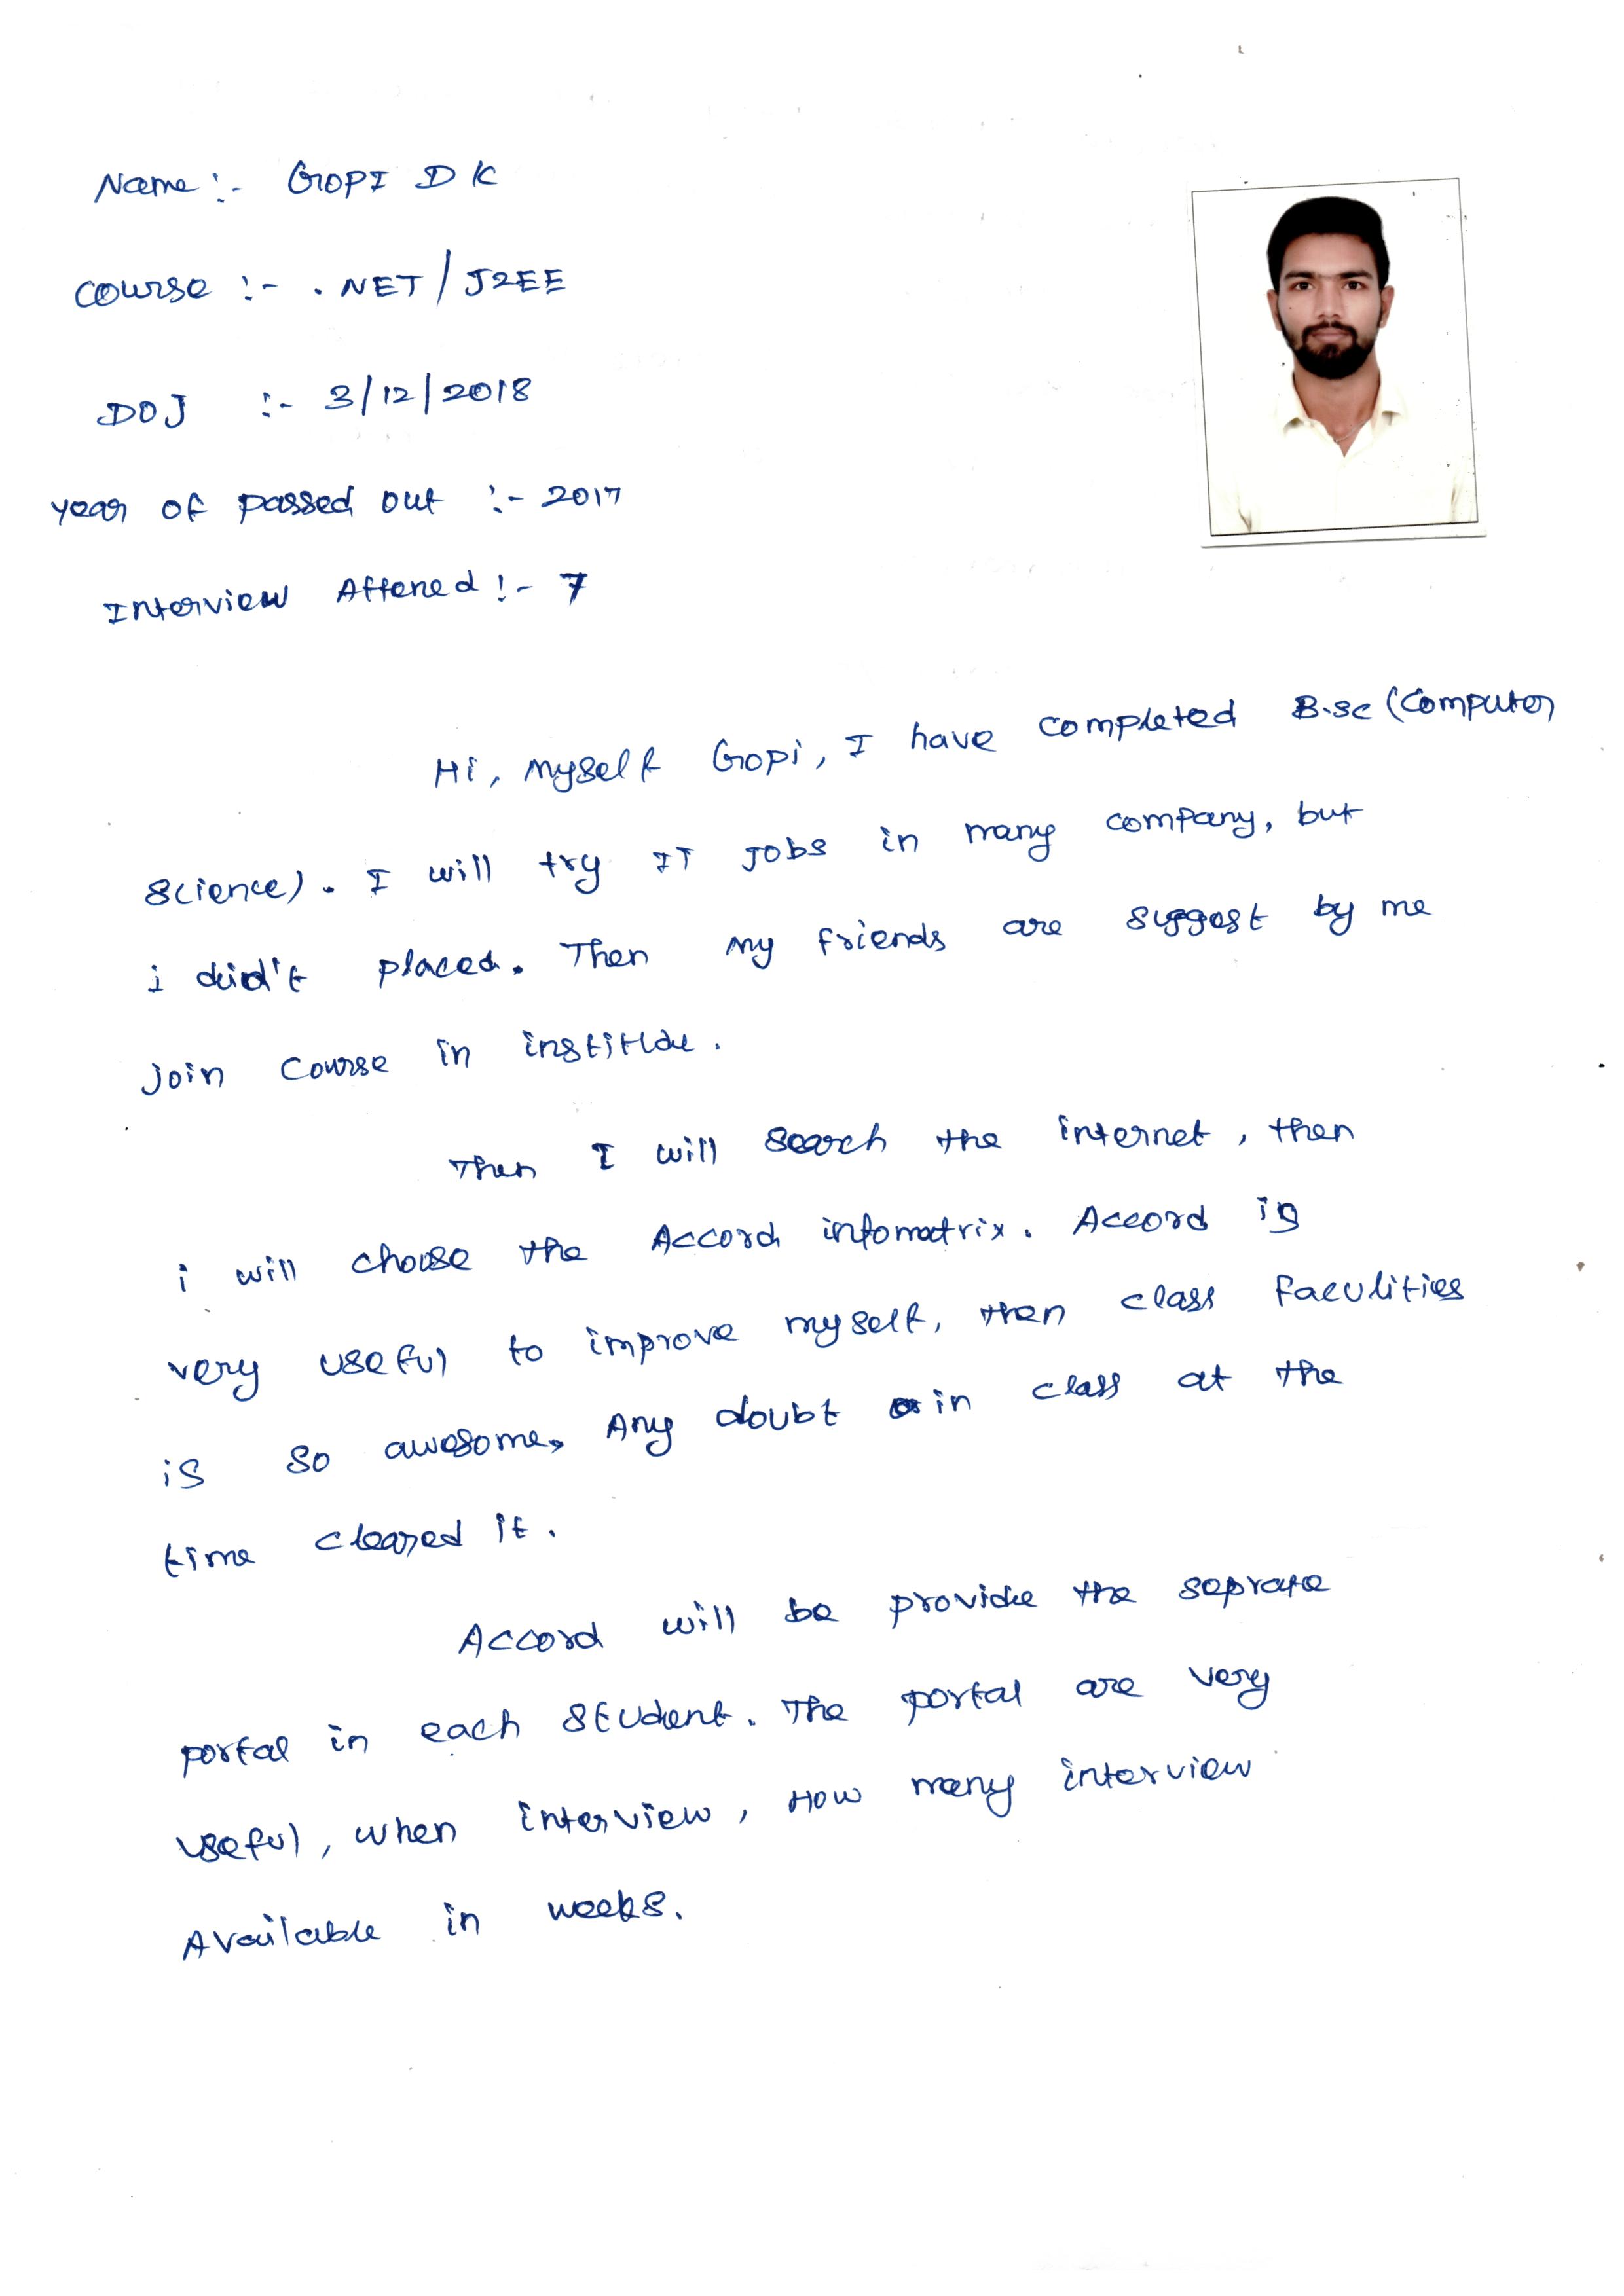 Name :- GOPI D K
Course :- .NET/J2EE
DOJ :- 3/12/2018
year of passed out :- 2017
Interview Attened :- 7
Hi, myself Gopi, I have completed B.sc (Computer
Science). I will try IT jobs in many company, but
i did't placed. Then my friends are suggest by me
join course in institude.
Then I will search the internet, then
i will choose the Accord infomatrix. Accord is
very useful to improve myself, then class faculities
is so awesome, Any doubt in class at the
time cleared it.
Accord will be provide the seprate
portal in each student. The portal are very
useful, when interview, How many interview
Available in weeks.